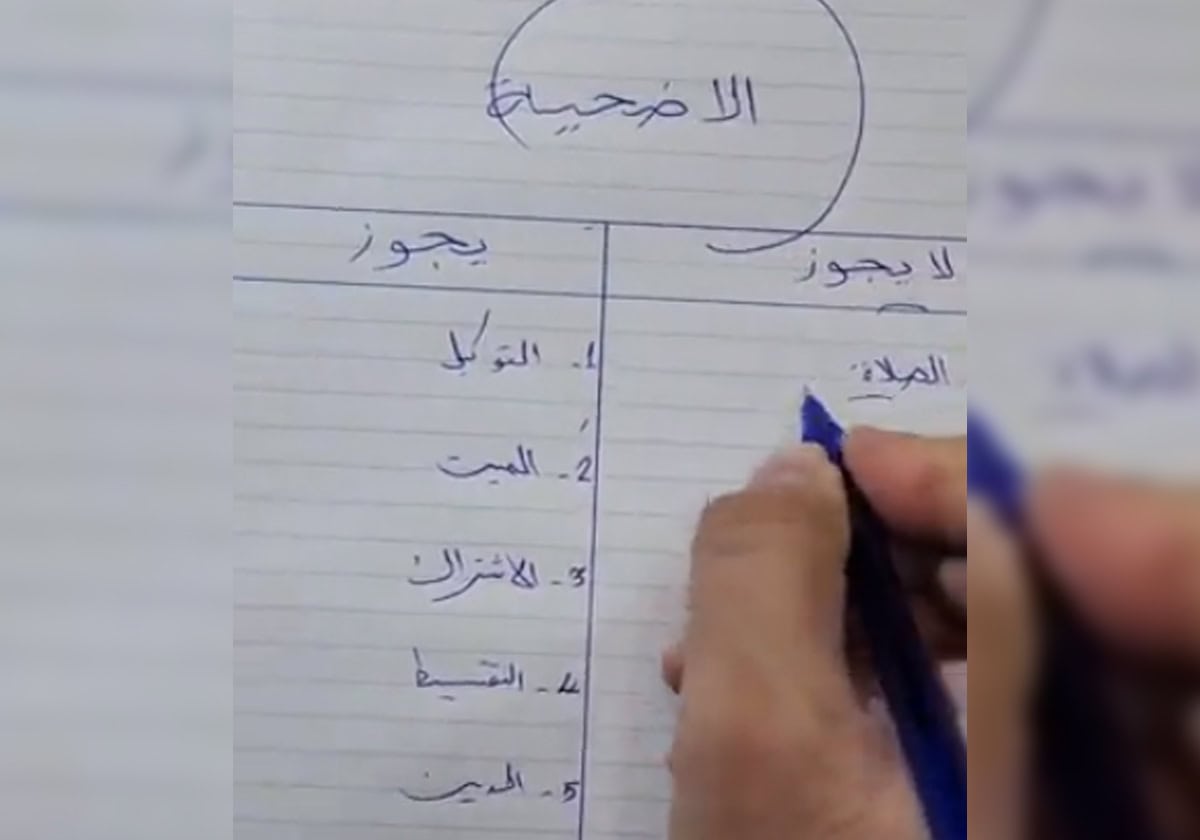 الاضحية
لا يجوز
يجوز
الصلاة
1- التوكيل
2- الميت
3- الاشتراك
4- التقسيط
5- الدين